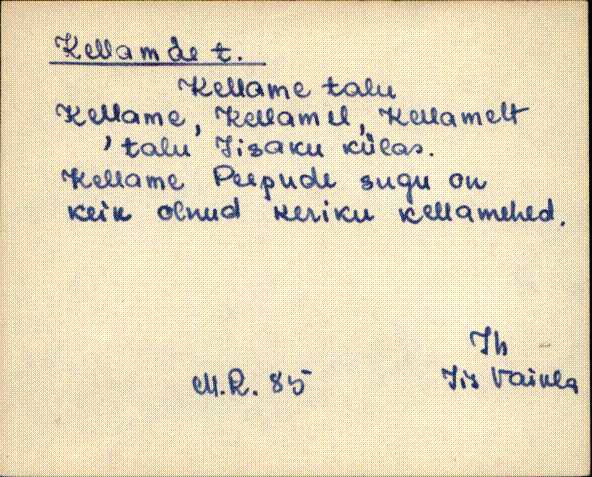 Kellamäe t.
Kellame talu
Kellame, Kellamel, Kellamelt
, talu Iisaku külas.
Kellame Peepude sugu on
keik olnud keriku kellamehed.
Ih
M.R. 85 Iis Vaikla